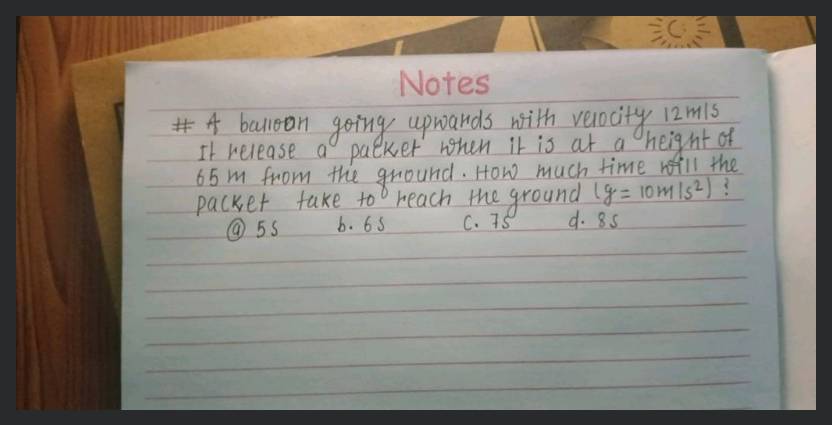 Notes
# A balloon going upwards with velocity 12m/s
It release a packet when it is at a height of
65 m from the ground. How much time will the
packet take to reach the ground (g = 10m/s²) ?
(a) 5s b. 6s c. 7s d. 8s